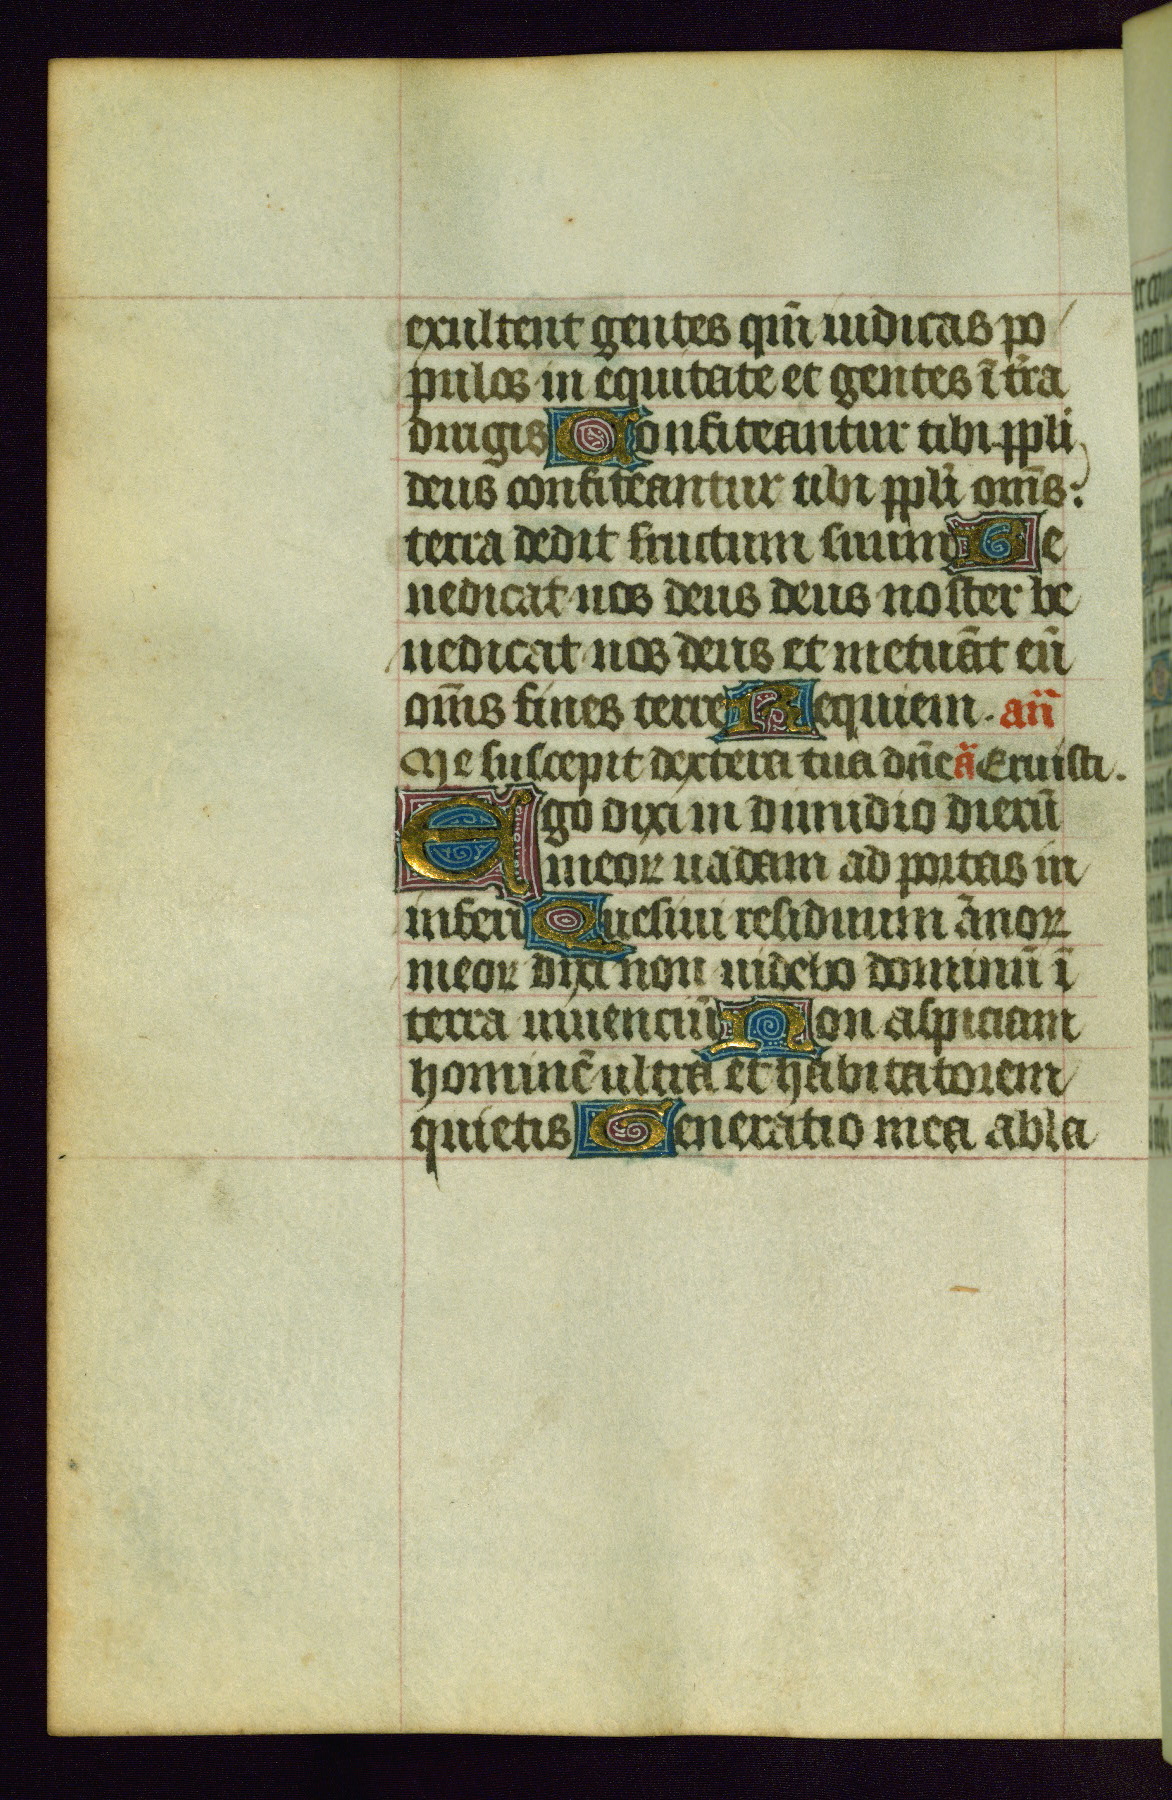 exultent gentes qm̄ iudicas po
pulos in equitate et gentes ī tr̄a
dirigis Confiteantur tibi ppli
deus confiteantur tibi ppli om̄s:
terra dedit fructum suum Be
nedicat nos deus deus noster be
nedicat nos deus et metuāt eū
om̄s fines terre Requiem. an̄
Me suscepit dextera tua dn̄e ā Eruisti.
Ego dixi in dimidio dierū
meor uadam ad portas in
inferi Quesiui residuum ānor
meor dixi non uidebo dominū ī
terra uiuenciū Non aspiciam
hominē ultra et habitatorem
quietis Generatio mea abla